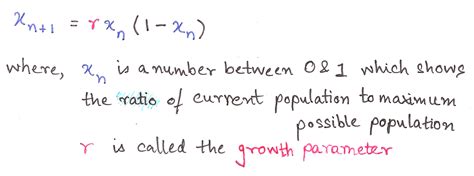 xₙ₊₁ = r xₙ (1 − xₙ)
where, xₙ is a number between 0 & 1 which shows
the ratio of current population to maximum
possible population
r is called the growth parameter